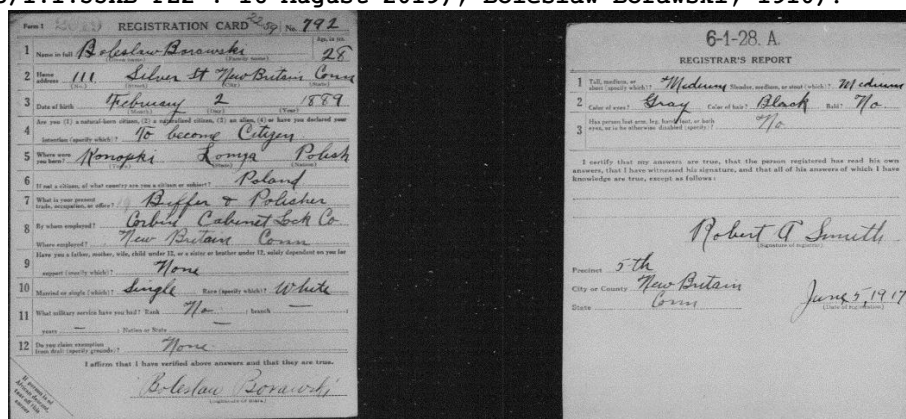 Form 1 REGISTRATION CARD 22-59 No. 792
Age, in yrs.
1 Name in full Boleslaw Borawski 28
(Given name) (Family name)
2 Home address 111 Silver St New Britain Conn
(No.) (Street) (City) (State)
3 Date of birth February 2 1889
(Month) (Day) (Year)
4 Are you (1) a natural-born citizen, (2) a naturalized citizen, (3) an alien, (4) or have you declared your
intention (specify which)? To become Citizen
5 Where were you born? Konopki Lomza Polish
(Town) (State) (Nation)
6 If not a citizen, of what country are you a citizen or subject? Poland
7 What is your present trade, occupation, or office? Biffer & Polisher
8 By whom employed? Corbin Cabinet Lock Co
Where employed? New Britain Conn
9 Have you a father, mother, wife, child under 12, or a sister or brother under 12, solely dependent on you for
support (specify which)? None
10 Married or single (which)? Single Race (specify which)? White
11 What military service have you had? Rank No ; branch — ;
years — ; Nation or State —
12 Do you claim exemption from draft (specify grounds)? None
I affirm that I have verified above answers and that they are true.
Boleslaw Borawski
If person is of African descent, tear off this corner
6-1-28. A.
REGISTRAR'S REPORT
1 Tall, medium, or short (specify which)? Medium Slender, medium, or stout (which)? Medium
2 Color of eyes? Gray Color of hair? Black Bald? No
3 Has person lost arm, leg, hand, foot, or both eyes, or is he otherwise disabled (specify)? No
I certify that my answers are true, that the person registered has read his own
answers, that I have witnessed his signature, and that all of his answers of which I have
knowledge are true, except as follows:
Robert A Smith
(Signature of registrar)
Precinct 5th
City or County New Britain
State Conn
June 5, 1917
(Date of registration)